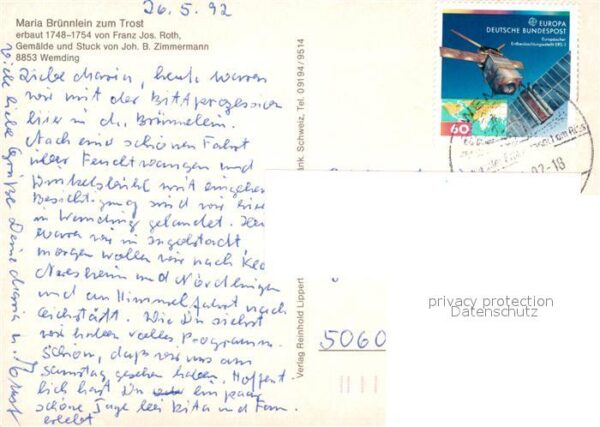 26.5.92
Maria Brünnlein zum Trost
erbaut 1748–1754 von Franz Jos. Roth,
Gemälde und Stuck von Joh. B. Zimmermann
8853 Wemding
Liebe Maria, heute waren
wir mit der Bittprozession
hier in d. Brünnlein.
Nach einer schönen Fahrt
über Feuchtwangen und
Dinkelsbühl mit
Besichtigung sind wir hier
in Wemding gelandet.
waren wir in Ingolstadt,
morgen wollen wir nach
Neresheim und Nördlingen
und an Himmelfahrt nach
Eichstätt. Wie Du siehst
wir haben volles Programm.
Schön, daß wir uns am
Samstag gesehen haben. Hoffent-
lich hast Du ein paar
schöne Tage bei Rita und Fam.
erlebt
Viele liebe Grüße Deine Maria u.
Verlag Reinhold Lippert
änk. Schweiz, Tel. 09194/9514
EUROPA
DEUTSCHE BUNDESPOST
Europäischer
Erdbeobachtungssatellit ERS-1
60
92-18
5060
privacy protection
Datenschutz